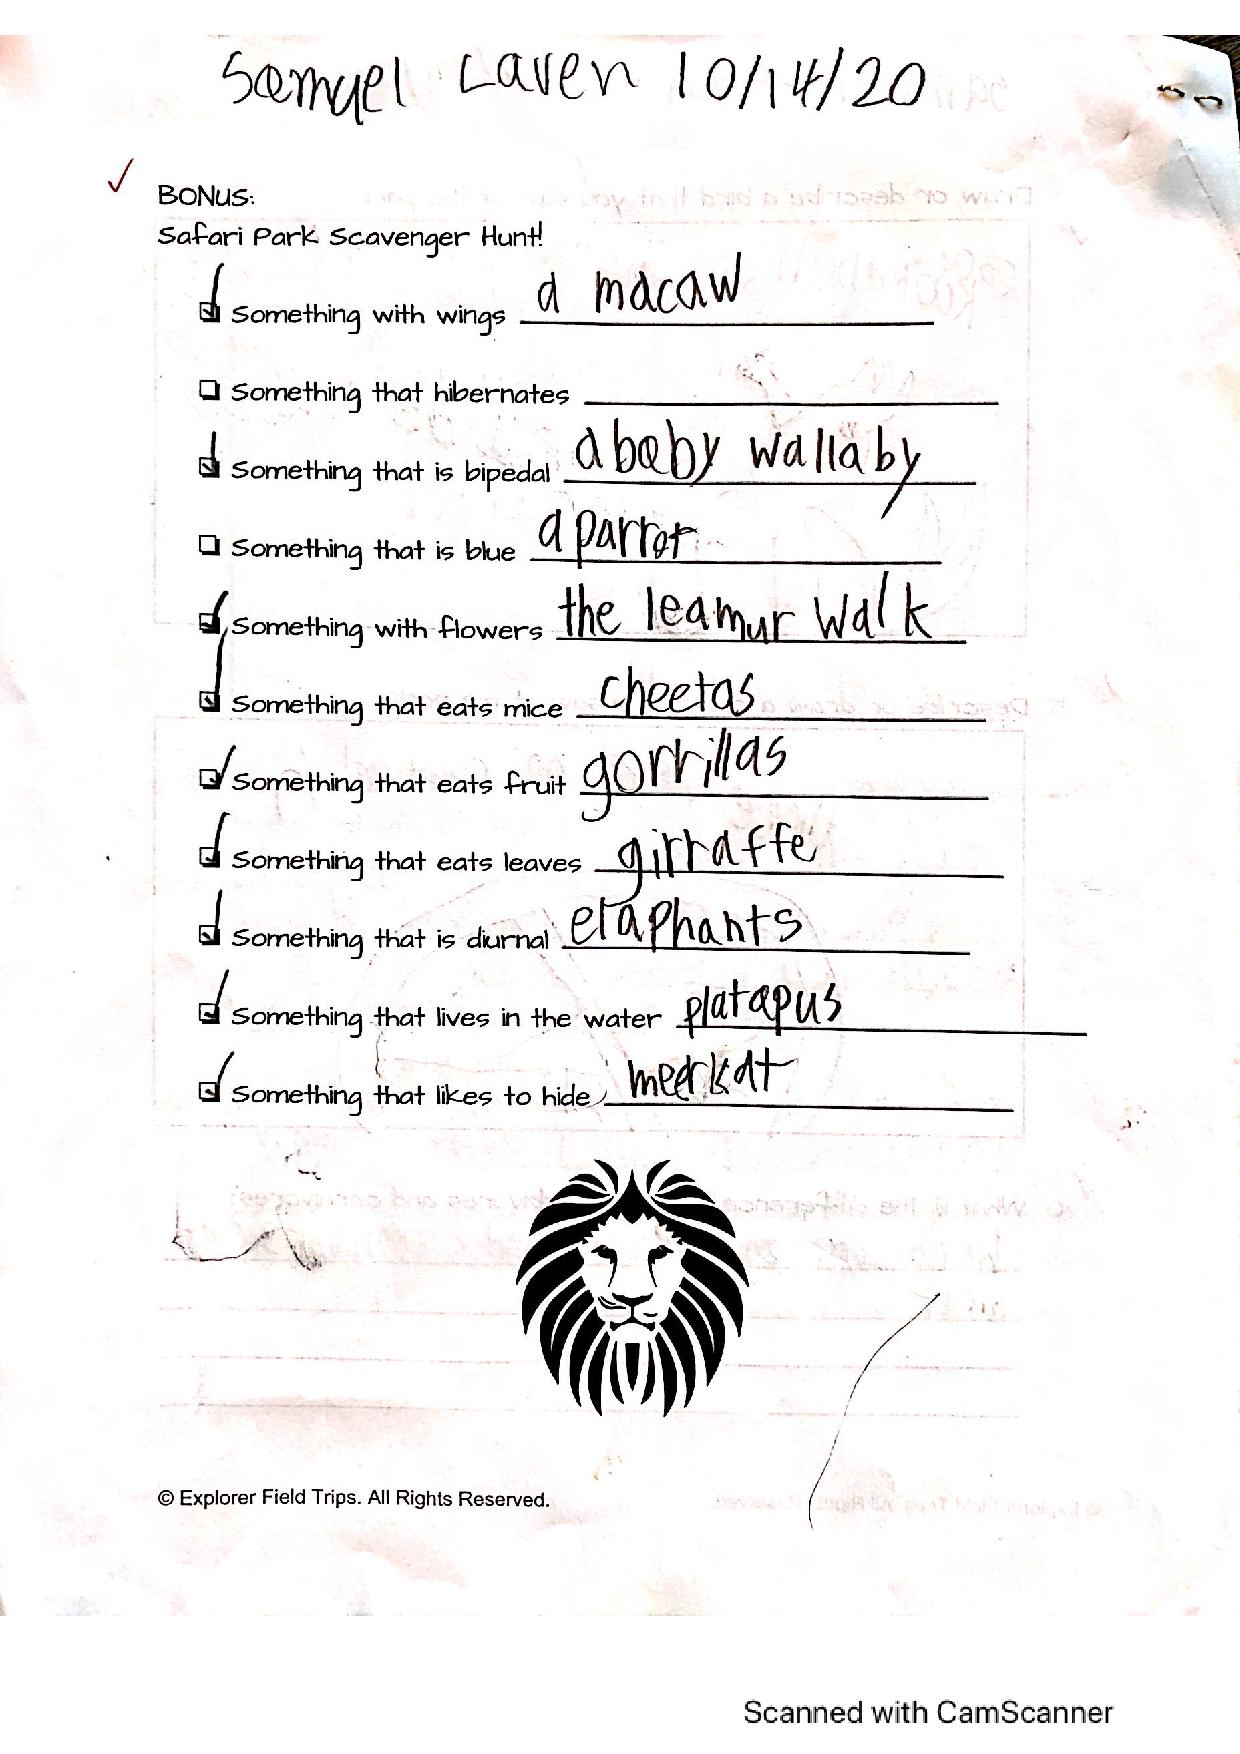 Samuel Laven 10/14/20
BONUS:
Safari Park Scavenger Hunt!
Something with wings a macaw
Something that hibernates
Something that is bipedal a baby wallaby
Something that is blue a parrot
Something with flowers the leamur walk
Something that eats mice cheetas
Something that eats fruit gorrillas
Something that eats leaves girraffe
Something that is diurnal elaphants
Something that lives in the water platapus
Something that likes to hide meerkat
© Explorer Field Trips. All Rights Reserved.
Scanned with CamScanner